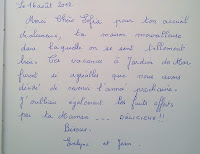 Le 16 août 2012
Merci Chère Sofia pour ton accueil
chaleureux, ta maison merveilleuse
dans laquelle on se sent tellement
bien. Ces vacances à Jardim do Mar
furent si agréables que nous avons
décidé de revenir l'année prochaine.
J'oubliais également les fruits offerts
par ta Maman ... DÉLICIEUX !!!
Bisous.
Evelyne et Jean.